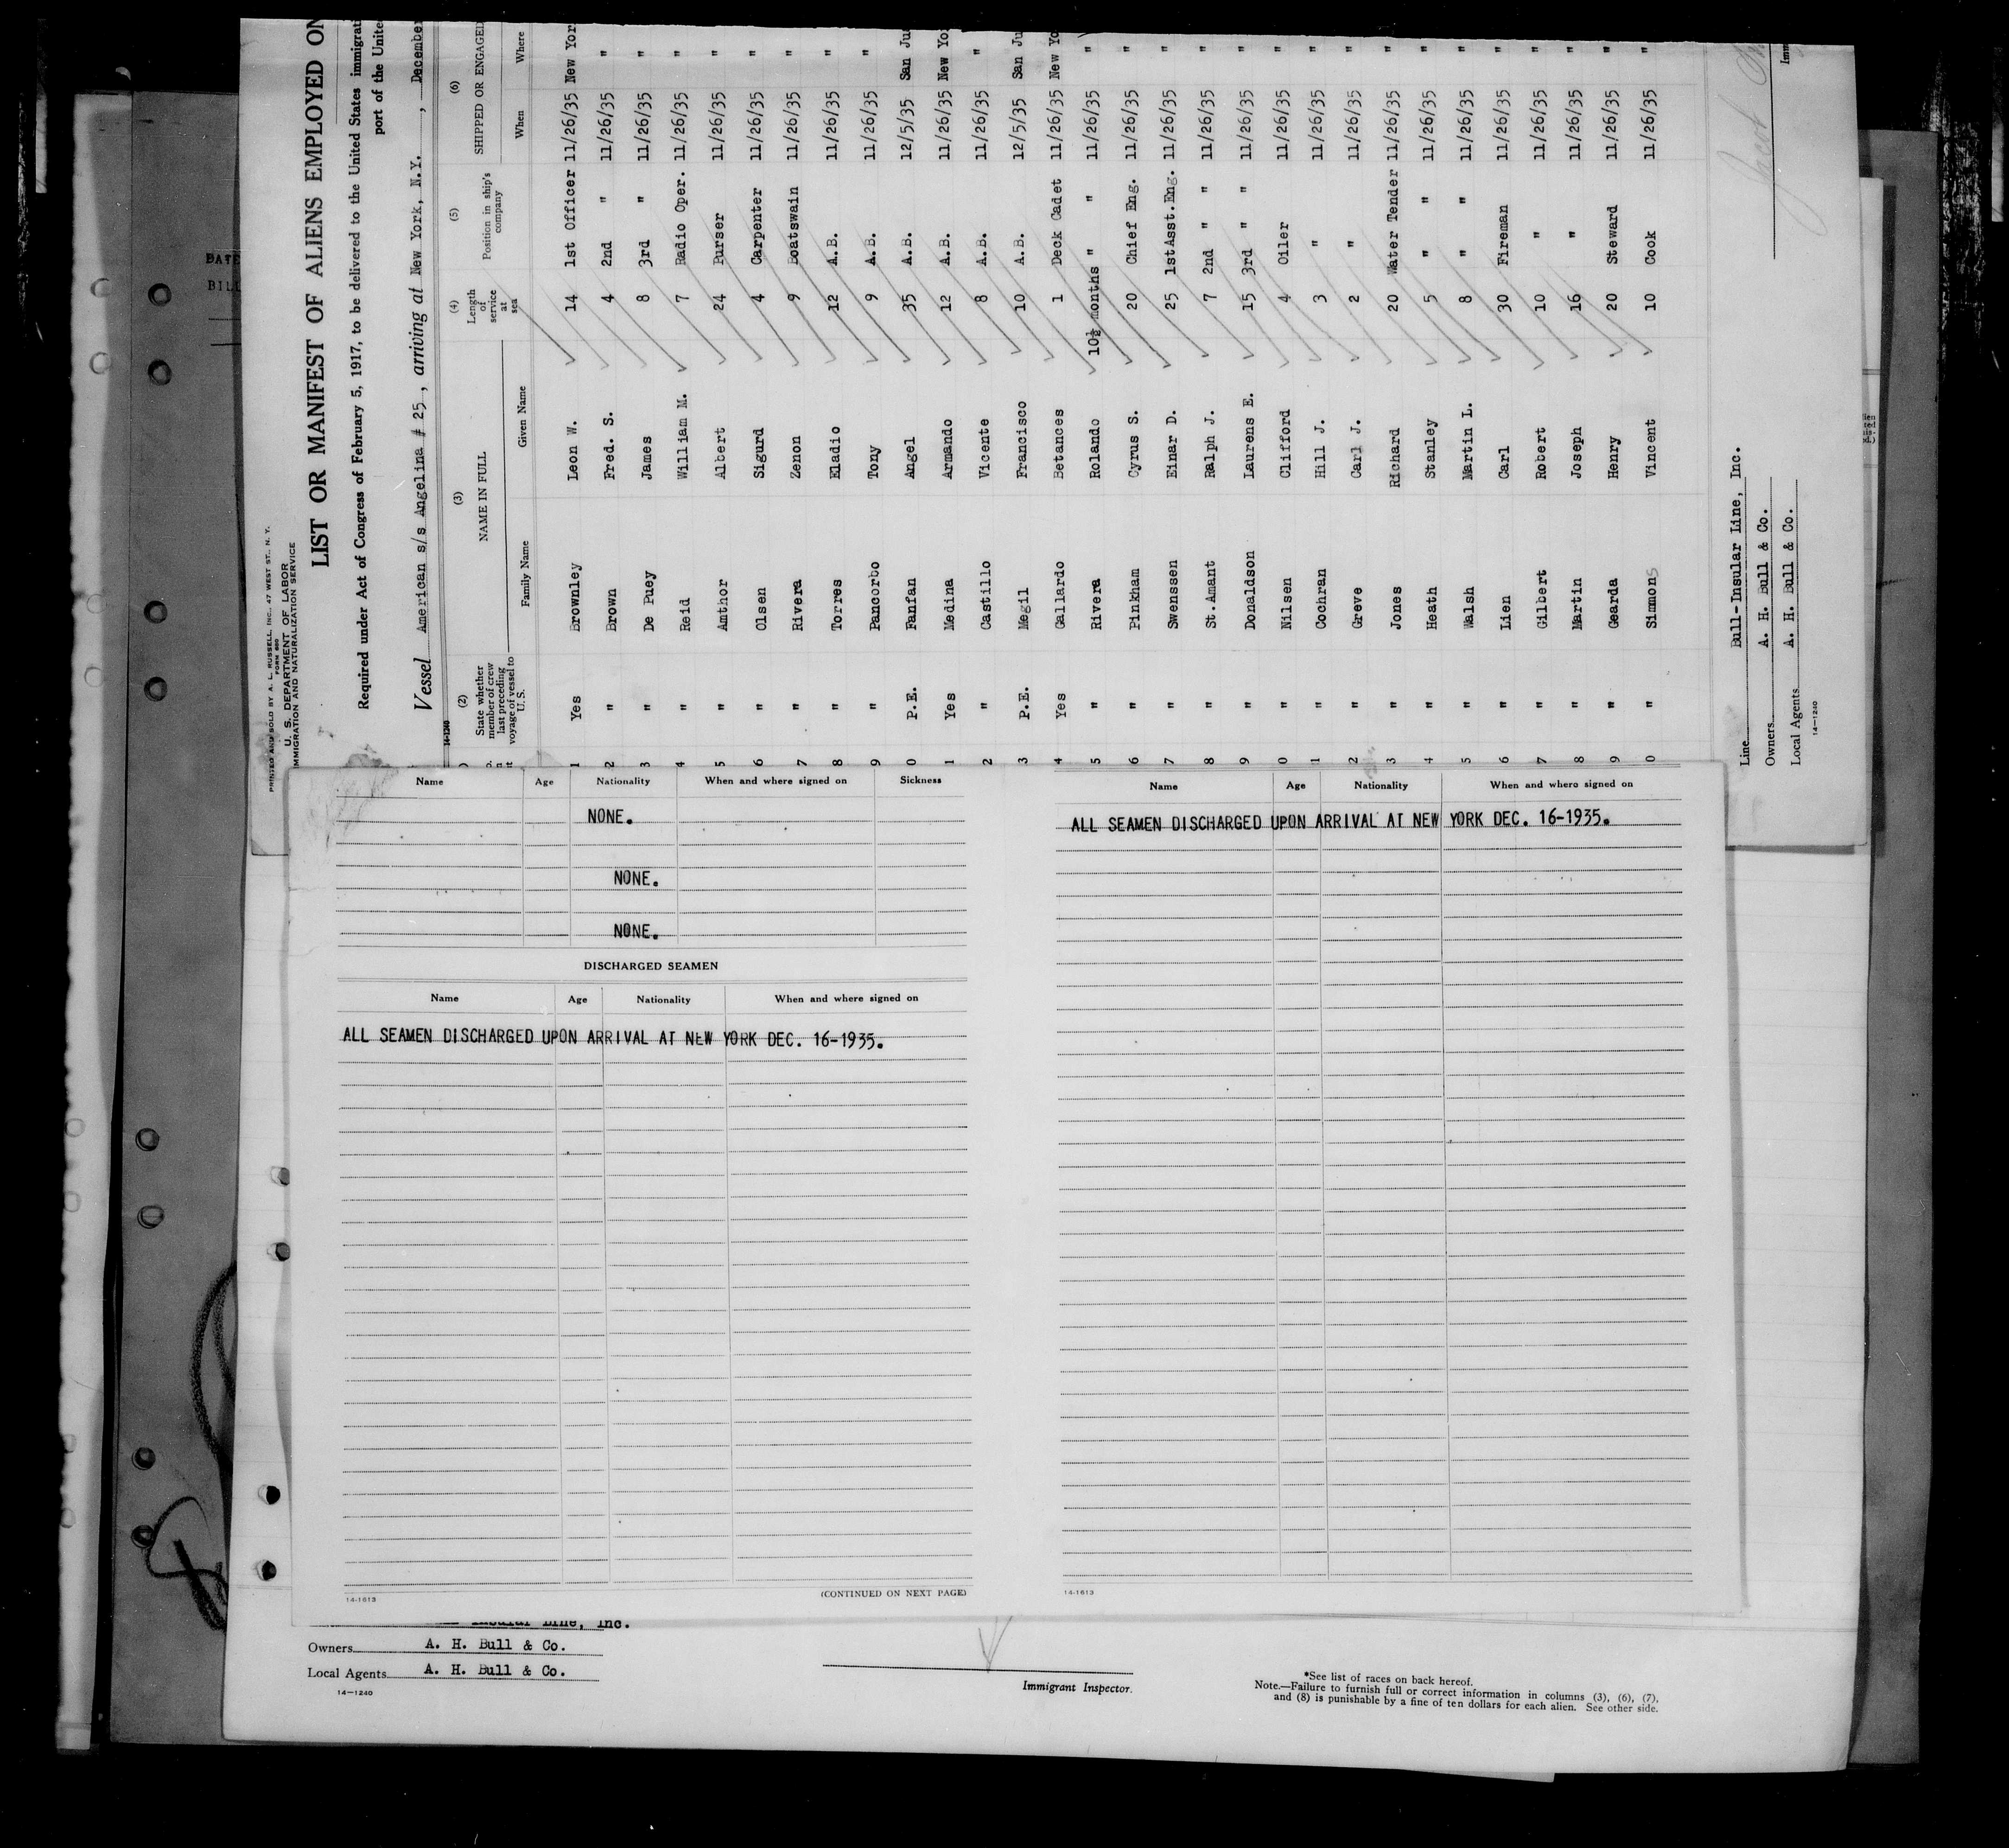 DATE
BILL
PRINTED AND SOLD BY A. L. RUSSELL, INC., 47 WEST ST., N. Y.
FORM 690
U. S. DEPARTMENT OF LABOR
IMMIGRATION AND NATURALIZATION SERVICE
LIST OR MANIFEST OF ALIENS EMPLOYED ON
Required under Act of Congress of February 5, 1917, to be delivered to the United States immigrati
port of the Unite
Vessel American s/s Angelina # 25, arriving at New York, N.Y. , December
14-1240
(2) (3) (4) (5) (6)
State whether member of crew last preceding voyage of vessel to U.S. NAME IN FULL Length of service at sea Position in ship's company SHIPPED OR ENGAGED
Family Name Given Name When Where
1 Yes Brownley Leon W. 14 1st Officer 11/26/35 New Yor
2 " Brown Fred. S. 4 2nd " 11/26/35 "
3 " De Puey James 8 3rd " 11/26/35 "
4 " Reid William M. 7 Radio Oper. 11/26/35 "
5 " Amthor Albert 24 Purser 11/26/35 "
6 " Olsen Sigurd 4 Carpenter 11/26/35 "
7 " Rivera Zenon 9 Boatswain 11/26/35 "
8 " Torres Eladio 12 A.B. 11/26/35 "
9 " Pancorbo Tony 9 A.B. 11/26/35 "
0 P.E. Fanfan Angel 35 A.B. 12/5/35 San Ju
1 Yes Medina Armando 12 A.B. 11/26/35 New Yo
2 " Castillo Vicente 8 A.B. 11/26/35 "
3 P.E. Megil Francisco 10 A.B. 12/5/35 San Ju
4 Yes Gallardo Betances 1 Deck Cadet 11/26/35 New Yo
5 " Rivera Rolando 10½ months " " 11/26/35 "
6 " Pinkham Cyrus S. 20 Chief Eng. 11/26/35 "
7 " Swenssen Einar D. 25 1stAsst.Eng. 11/26/35 "
8 " St.Amant Ralph J. 7 2nd " " 11/26/35 "
9 " Donaldson Laurens E. 15 3rd " " 11/26/35 "
0 " Nilsen Clifford 4 Oiler 11/26/35 "
1 " Cochran Hill J. 3 " 11/26/35 "
2 " Greve Carl J. 2 " 11/26/35 "
3 " Jones Richard 20 Water Tender 11/26/35 "
4 " Heath Stanley 5 " " 11/26/35 "
5 " Walsh Martin L. 8 " " 11/26/35 "
6 " Lien Carl 30 Fireman 11/26/35 "
7 " Gilbert Robert 10 " 11/26/35 "
8 " Martin Joseph 16 " 11/26/35 "
9 " Gearda Henry 20 Steward 11/26/35 "
0 " Simmons Vincent 10 Cook 11/26/35 "
Line Bull-Insular Line, Inc.
Owners A. H. Bull & Co.
Local Agents A. H. Bull & Co.
14-1240
Imm
Name Age Nationality When and where signed on Sickness
NONE.
NONE.
NONE.
DISCHARGED SEAMEN
Name Age Nationality When and where signed on
ALL SEAMEN DISCHARGED UPON ARRIVAL AT NEW YORK DEC. 16-1935.
14-1613
(CONTINUED ON NEXT PAGE)
Name Age Nationality When and where signed on
ALL SEAMEN DISCHARGED UPON ARRIVAL AT NEW YORK DEC. 16-1935.
14-1613
Insular Line, Inc.
Owners A. H. Bull & Co.
Local Agents A. H. Bull & Co.
14-1240
Immigrant Inspector.
*See list of races on back hereof.
Note.—Failure to furnish full or correct information in columns (3), (6), (7),
and (8) is punishable by a fine of ten dollars for each alien. See other side.